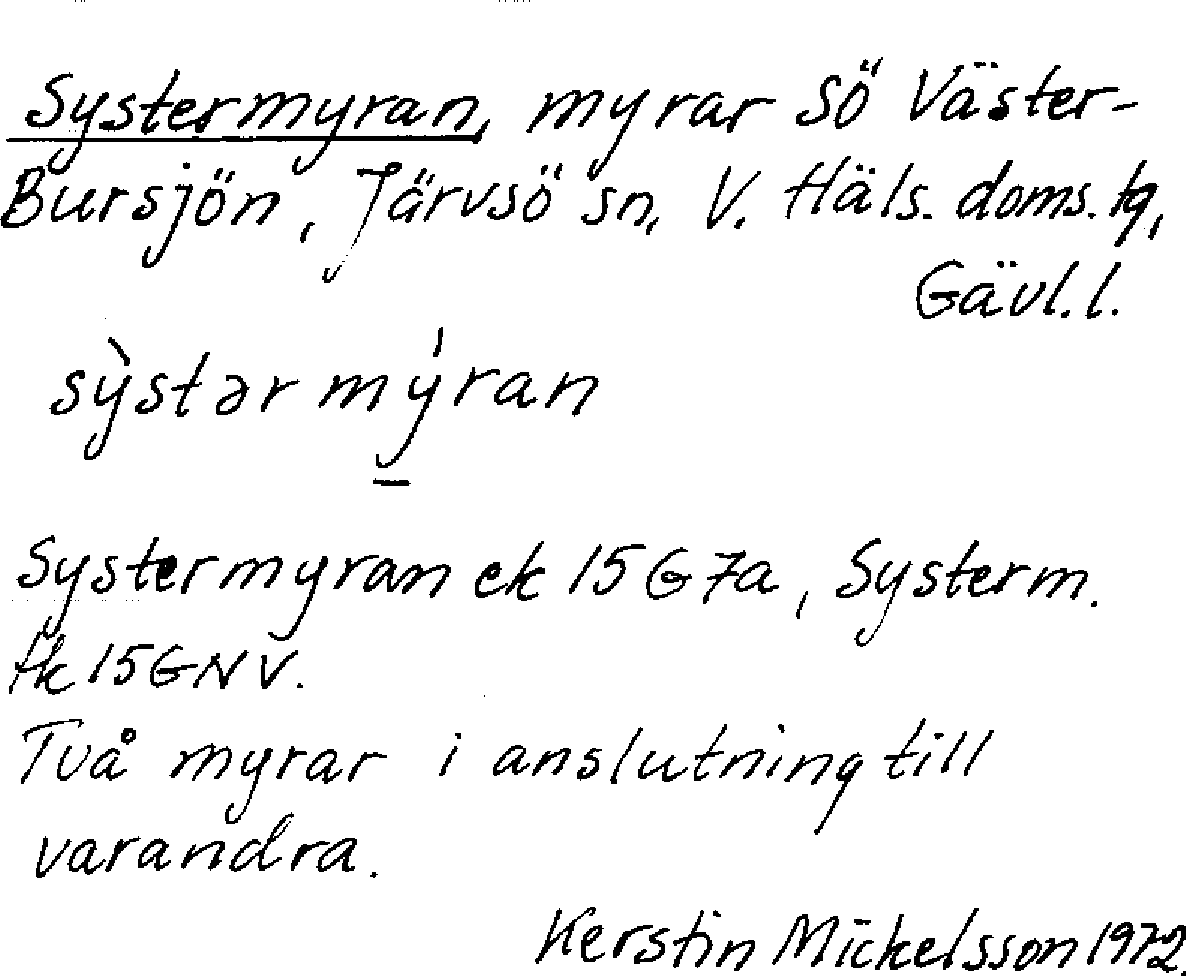 Systermyran, myrar SÖ Väster-
Bursjön, Järvsö sn, V. Häls. doms. tg,
Gävl. l.
sỳstər mýran
Systermyran ek 15 G 7a, Systerm.
tk 15 G NV.
Två myrar i anslutning till
varandra.
Kerstin Mickelsson 1972.